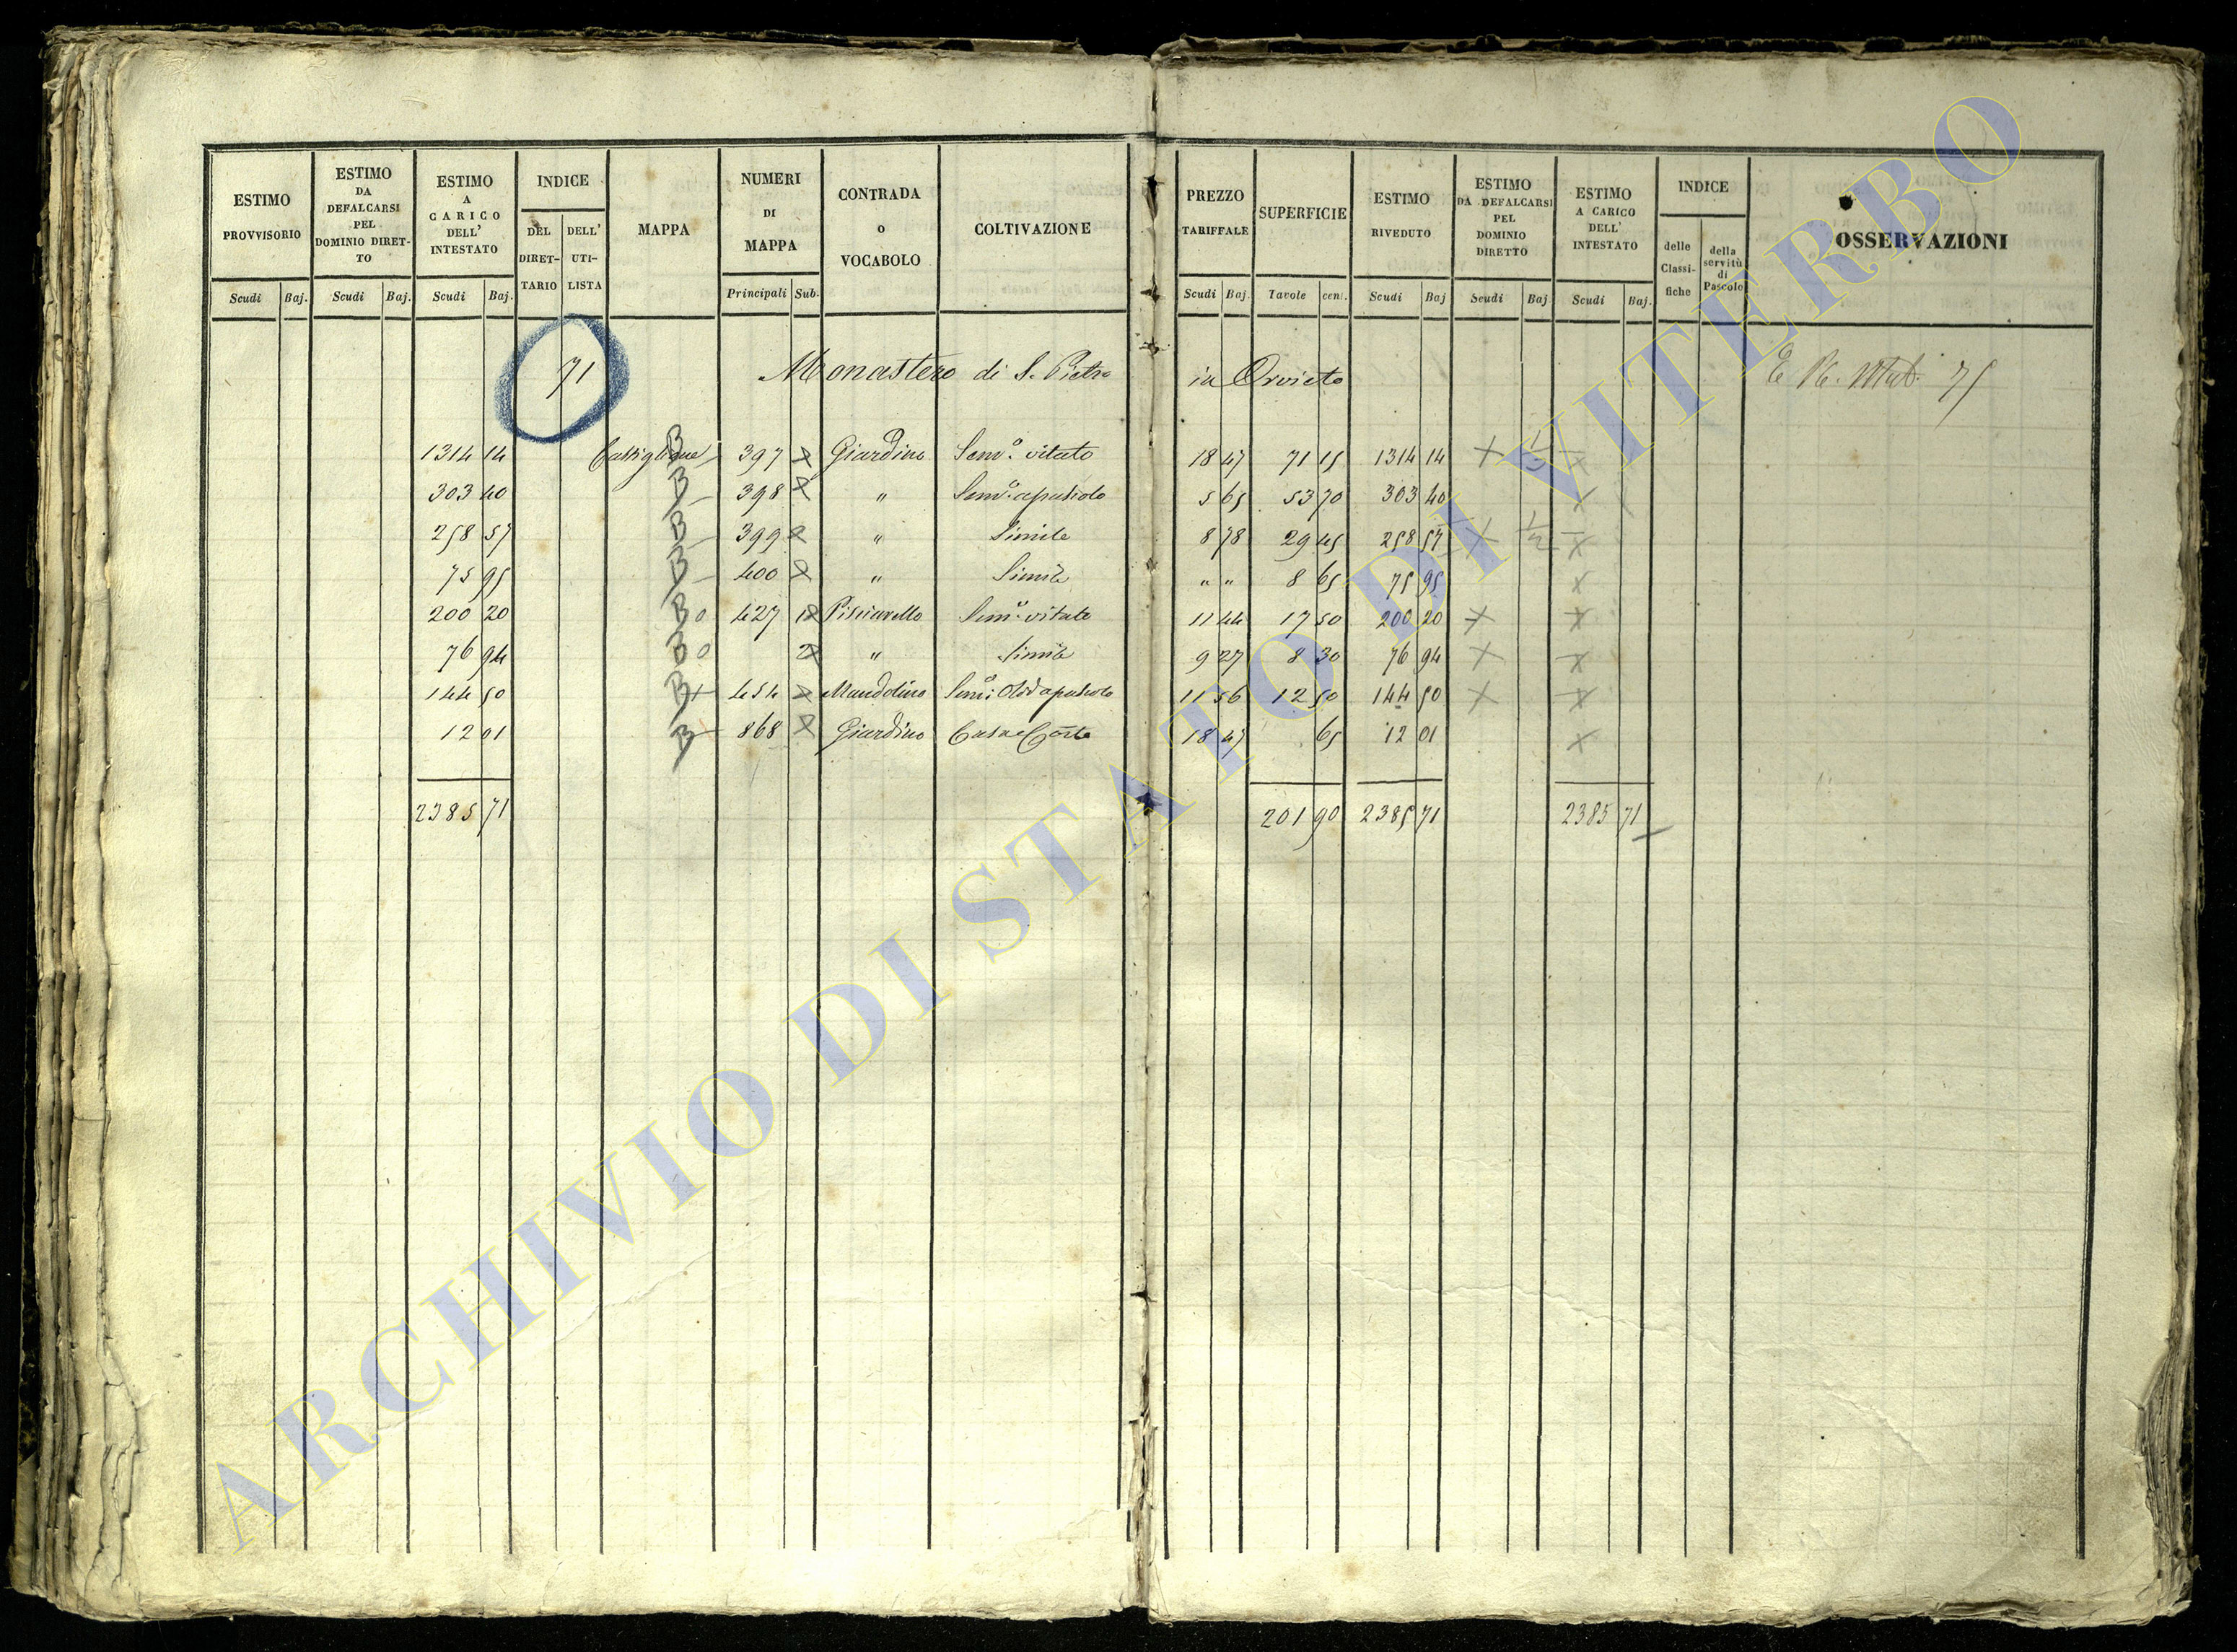 ESTIMO PROVVISORIO
ESTIMO DA DEFALCARSI PEL DOMINIO DIRET-TO
ESTIMO A CARICO DELL' INTESTATO
INDICE
DEL DIRET-TARIO
DELL' UTI-LISTA
MAPPA
NUMERI DI MAPPA
CONTRADA o VOCABOLO
COLTIVAZIONE
PREZZO TARIFFALE
SUPERFICIE
ESTIMO RIVEDUTO
ESTIMO DA DEFALCARSI PEL DOMINIO DIRETTO
ESTIMO A CARICO DELL' INTESTATO
INDICE
delle Classi-fiche
della servitù di Pascolo
OSSERVAZIONI
Scudi Baj. Scudi Baj. Scudi Baj. Principali Sub. Scudi Baj. Tavole cent. Scudi Baj Scudi Baj Scudi Baj.
71 Monastero di S. Pietro in Orvieto 75
1314 14 Castiglione B 397 Giardino Sem.o vitato 18 47 71 15 1314 14 X 1/2 X
303 40 B 398 " Sem.o 5 65 53 70 303 40 X
258 57 B 399 " Simile 8 78 29 45 258 57 X 1/2 X
75 95 B 400 " Simile " " 8 65 75 95 X
200 20 B 0 427 1 Pisciarello Sem.o vitato 11 44 17 50 200 20 X X
76 94 B 0 2 " Simile 9 27 8 30 76 94 X X
144 50 B 454 Mandolino Sem.o 11 56 12 50 144 50 X X
12 01 B 868 Giardino Casa e Corte 18 47 65 12 01 X
2385 71 201 90 2385 71 2385 71
ARCHIVIO DI STATO DI VITERBO